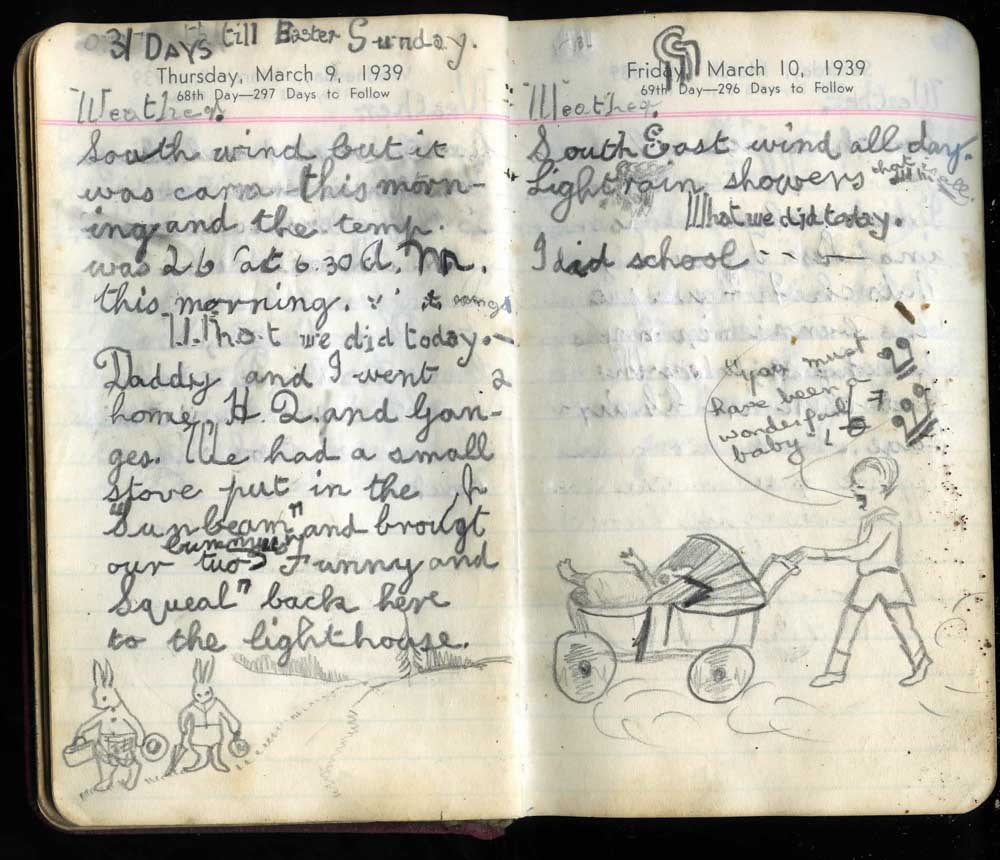 31 Days till Easter Sunday.
Thursday, March 9, 1939
68th Day—297 Days to Follow
Weather.
South wind but it
was carm this morn-
ing and the temp.
was 26 at 6.30 A. M.
this morning.
What we did today.
Daddy and I went
home, H. Q. and Gan-
ges. We had a small
stove put in the
"Sunbeam" and brougt
our two bunnies "Funny and
Squeal" back here
to the lighthouse.
Friday, March 10, 1939
69th Day—296 Days to Follow
Weather.
South East wind all day.
Light rain showers
What we did today.
I did school
"you must
have been a
wonderful
baby"!